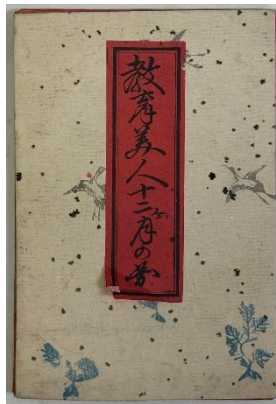 教育美人十二ヶ月の圖